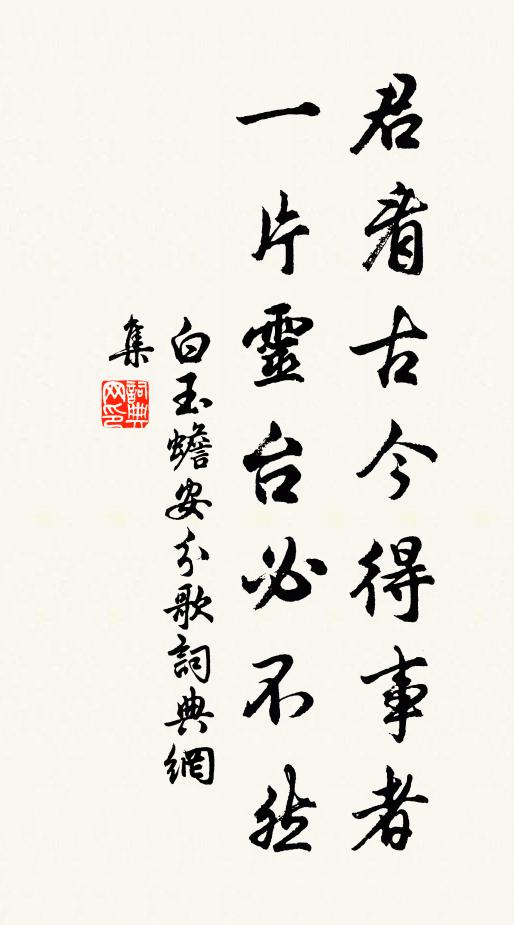 君看古今得事者
一片靈台必不然
白玉蟾安分歌詞典網
集
詞典網印